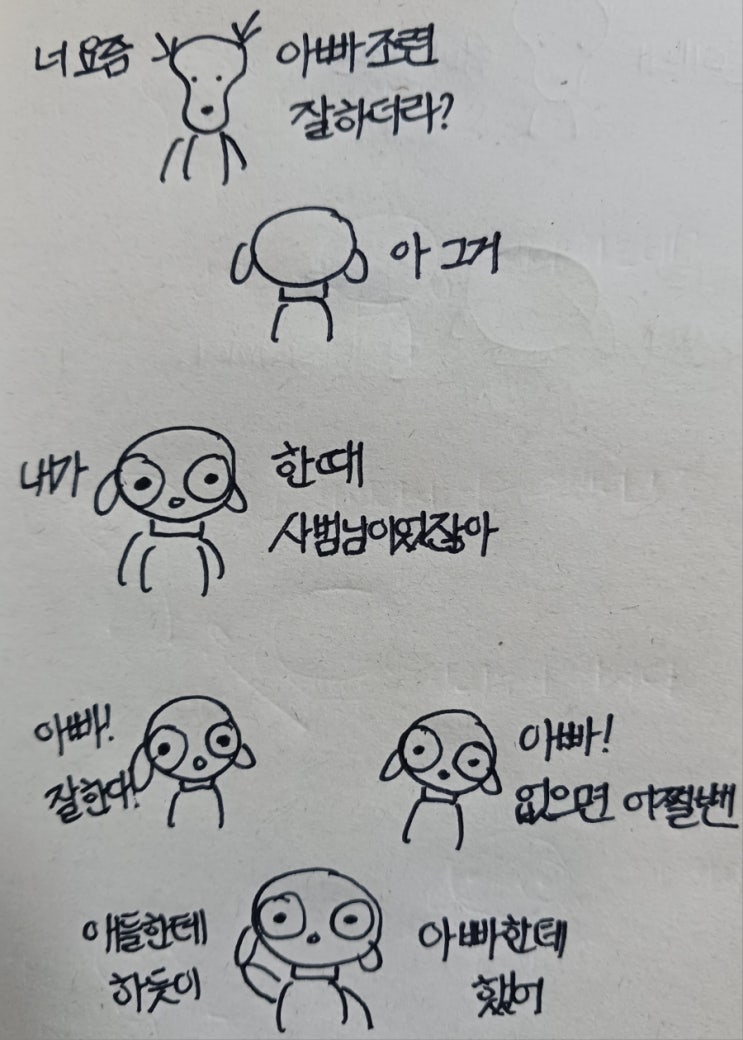 너 요즘 아빠 조련
잘하더라?
아 그거
내가 한때
사범님이었잖아
아빠!
잘한다!
아빠!
없으면 어쩔뻔
애들한테
하듯이
아빠한테
했어